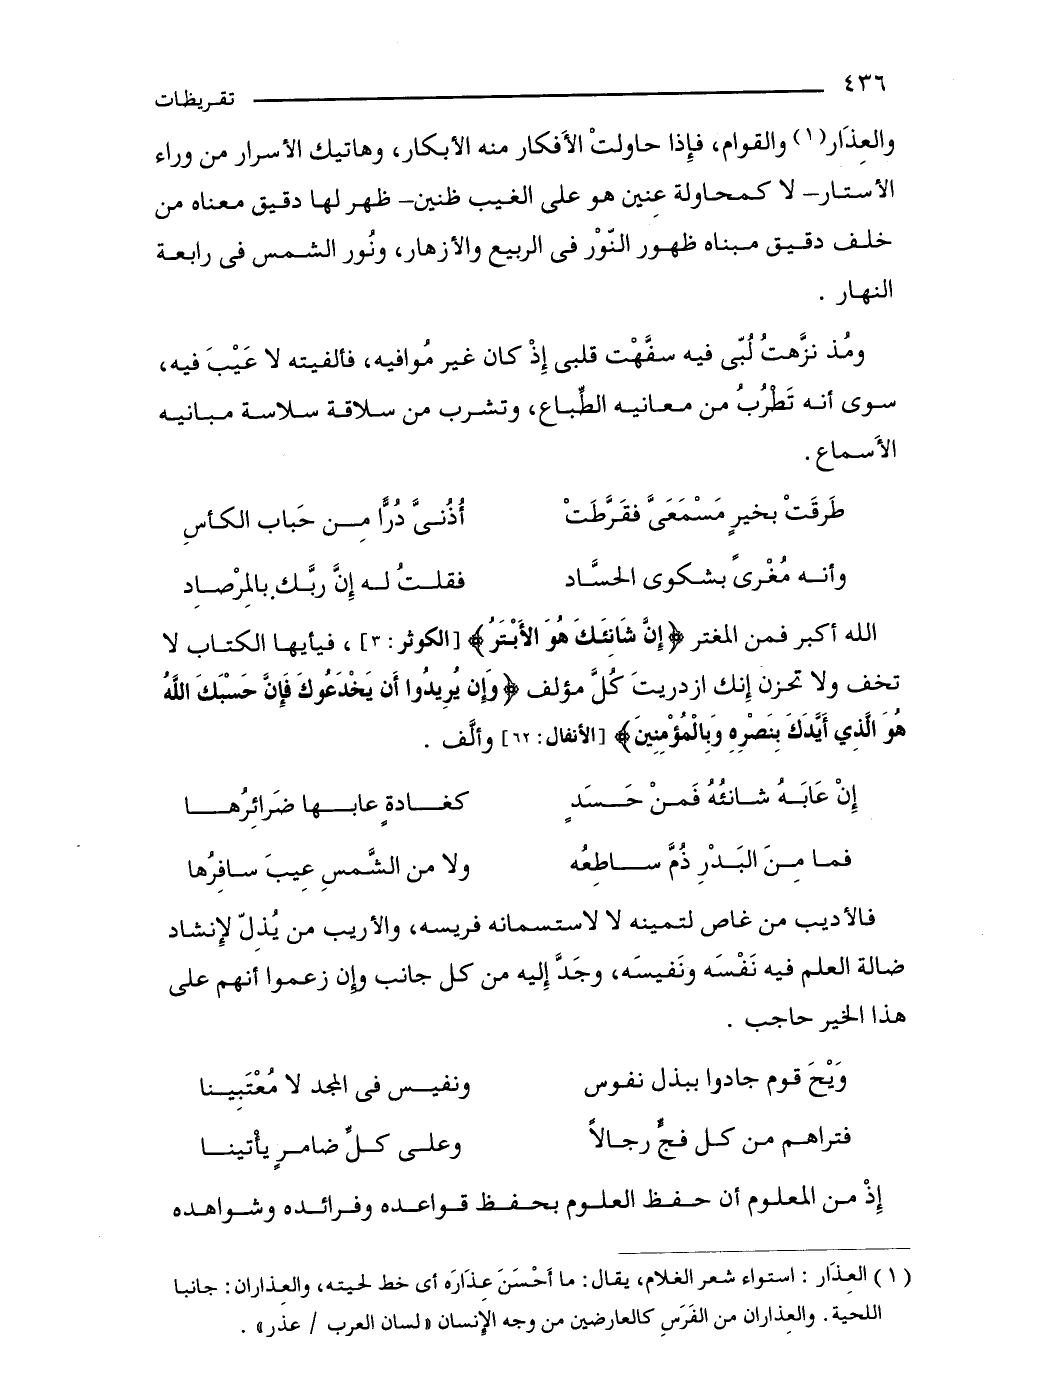 ٤٣٦ تقريظات
والعِذَار(١) والقوام، فإِذا حاولتْ الأفكار منه الأبكار، وهاتيك الأسرار من وراء
الأستار– لا كمحاولة عنين هو على الغيب ظنين– ظهر لها دقيق معناه من
خلف دقيق مبناه ظهور النّوْر فى الربيع والأزهار، ونُور الشمس فى رابعة
النهار .
ومُذ نزَّهتُ لُبّى فيه سفَّهْت قلبى إِذْ كان غير مُوافيه، فألفيته لا عَيْبَ فيه،
سوى أنه تَطْرُبُ من معانيه الطِّباع، وتشرب من سلافة سلاسة مبانيه
الأَسماع .
طَرقَتْ بخيرٍ مَسْمَعَىَّ فقَرَّطَتْ أُذُنىَّ دُرًّا مِن حَباب الكأسِ
وأنه مُغْرىً بشكوى الحسَّاد فقلتُ له إِنَّ ربَّك بالمِرْصادِ
الله أكبر فمن المغتر ﴿إِنَّ شَانِئَكَ هُوَ الأَبْتَرُ﴾ [الكوثر: ٣] ، فيأيها الكتاب لا
تخف ولا تحزن إِنك ازدريتَ كُلَّ مؤلف ﴿وَإِن يُرِيدُوا أَن يَخْدَعُوكَ فَإِنَّ حَسْبَكَ اللَّهُ
هُوَ الَّذِي أَيَّدَكَ بِنَصْرِهِ وَبِالْمُؤْمِنِينَ﴾ [الأنفال: ٦٢] وألَّف .
إِنْ عَابَهُ شانئُهُ فَمِنْ حَسَدٍ كغادةٍ عابها ضَرائِرُها
فما مِنَ البَدْرِ ذُمَّ ساطِعُه ولا من الشَّمسِ عِيبَ سافِرُها
فالأديب من غاص لتمينه لا لاستسمانه فريسه، والأريب من يُذلّ لإِنشاد
ضالة العلم فيه نَفْسَه ونَفيسَه، وجَدَّ إِليه من كل جانب وإِن زعموا أنهم على
هذا الخير حاجب .
وَيْحَ قوم جادوا ببذل نفوس ونفيس فى المجد لا مُعْتَبِينا
فتراهم من كل فجٍّ رجالاً وعلى كلِّ ضامرٍ يأْتينا
إِذْ من المعلوم أن حفظ العلوم بحفظ قواعده وفرائده وشواهده
(١) العِذَار : استواء شعر الغلام، يقال: ما أَحْسَنَ عِذَارَه أى خط لحيته، والعِذاران: جانبا
اللحية. والعِذاران من الفَرَسِ كالعارضين من وجه الإِنسان «لسان العرب / عذر» .